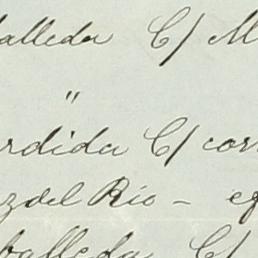 alleda C/ M
"
rdida C/ cor
z del Rio - ef
balleda C/